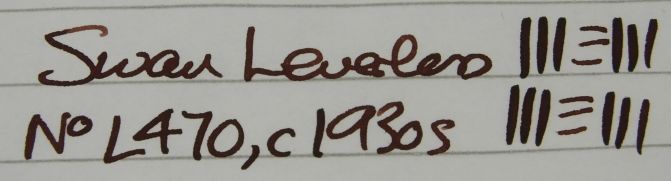 Swan Leverless
No L470, c1930s